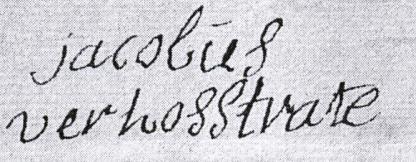 jacobus
verhosstrate